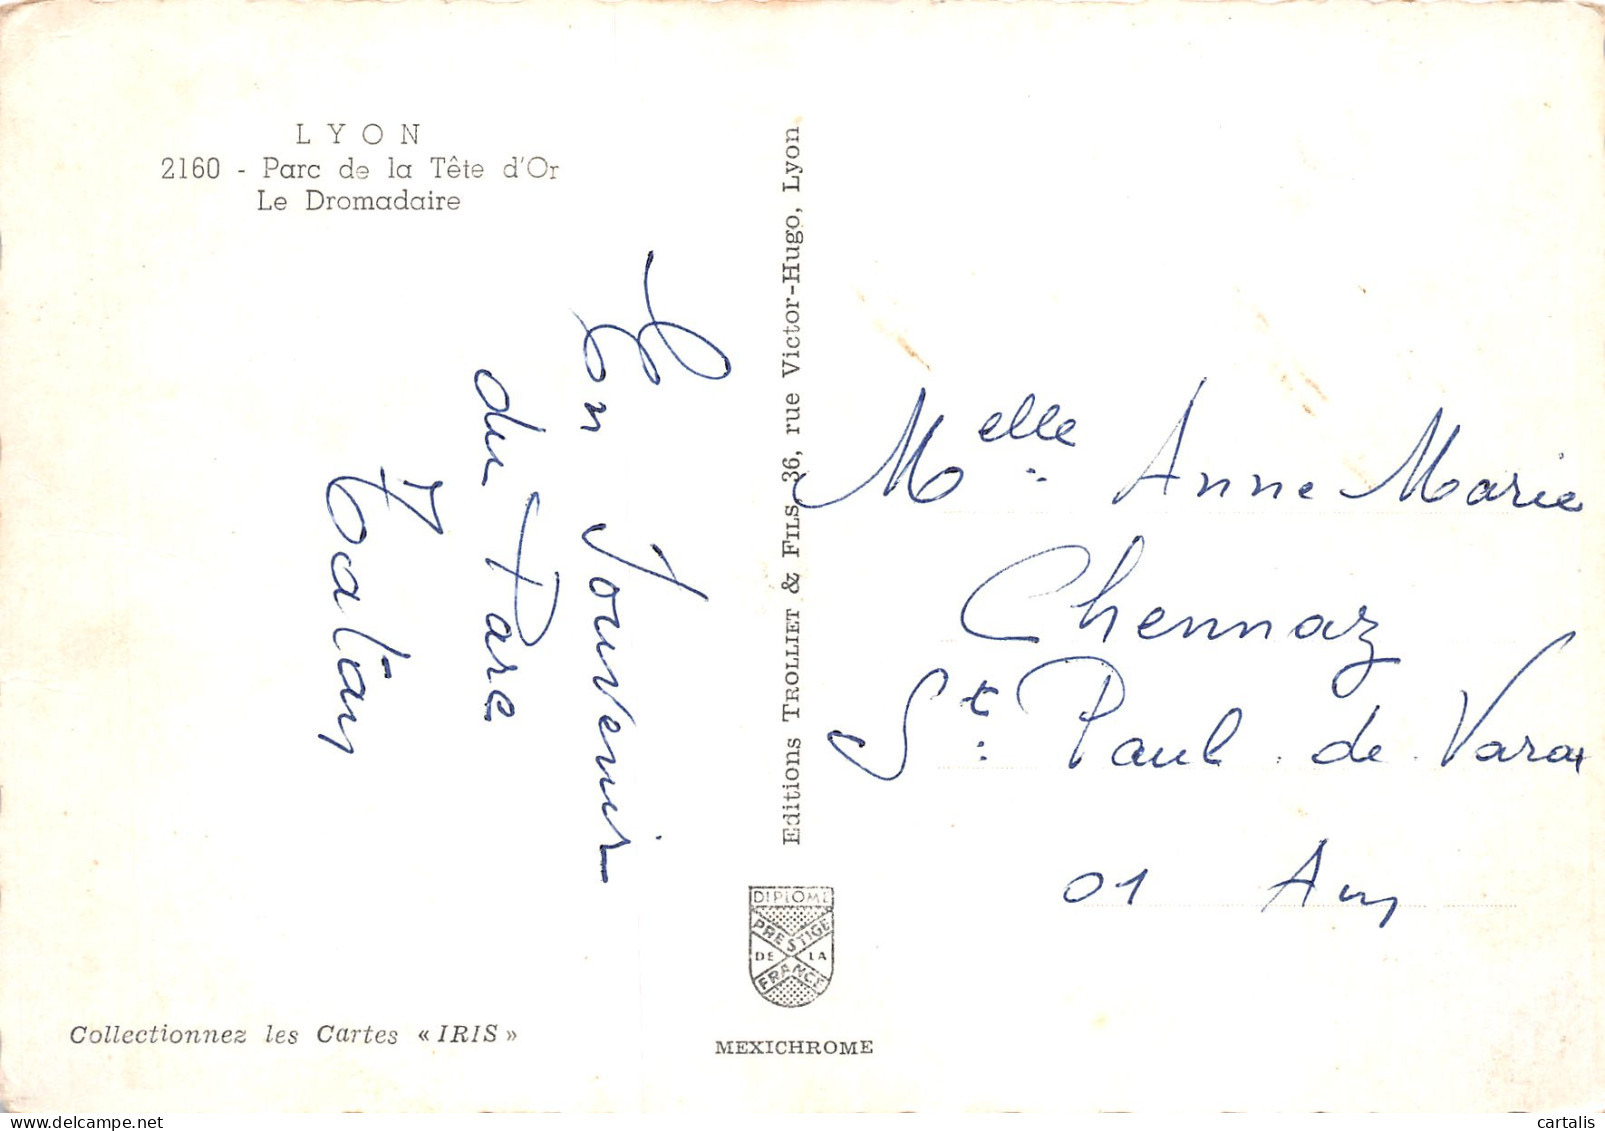 LYON
2160 - Parc de la Tête d'Or
Le Dromadaire
En Souvenir
du Parc
Editions TROLLIET & FILS, 36, rue Victor-Hugo, Lyon
Melle. Anne Marie
Chennaz
St. Paul de Varax
01
DIPLOME
PRESTIGE
DE LA
FRANCE
Collectionnez les Cartes « IRIS »
MEXICHROME
cartalis